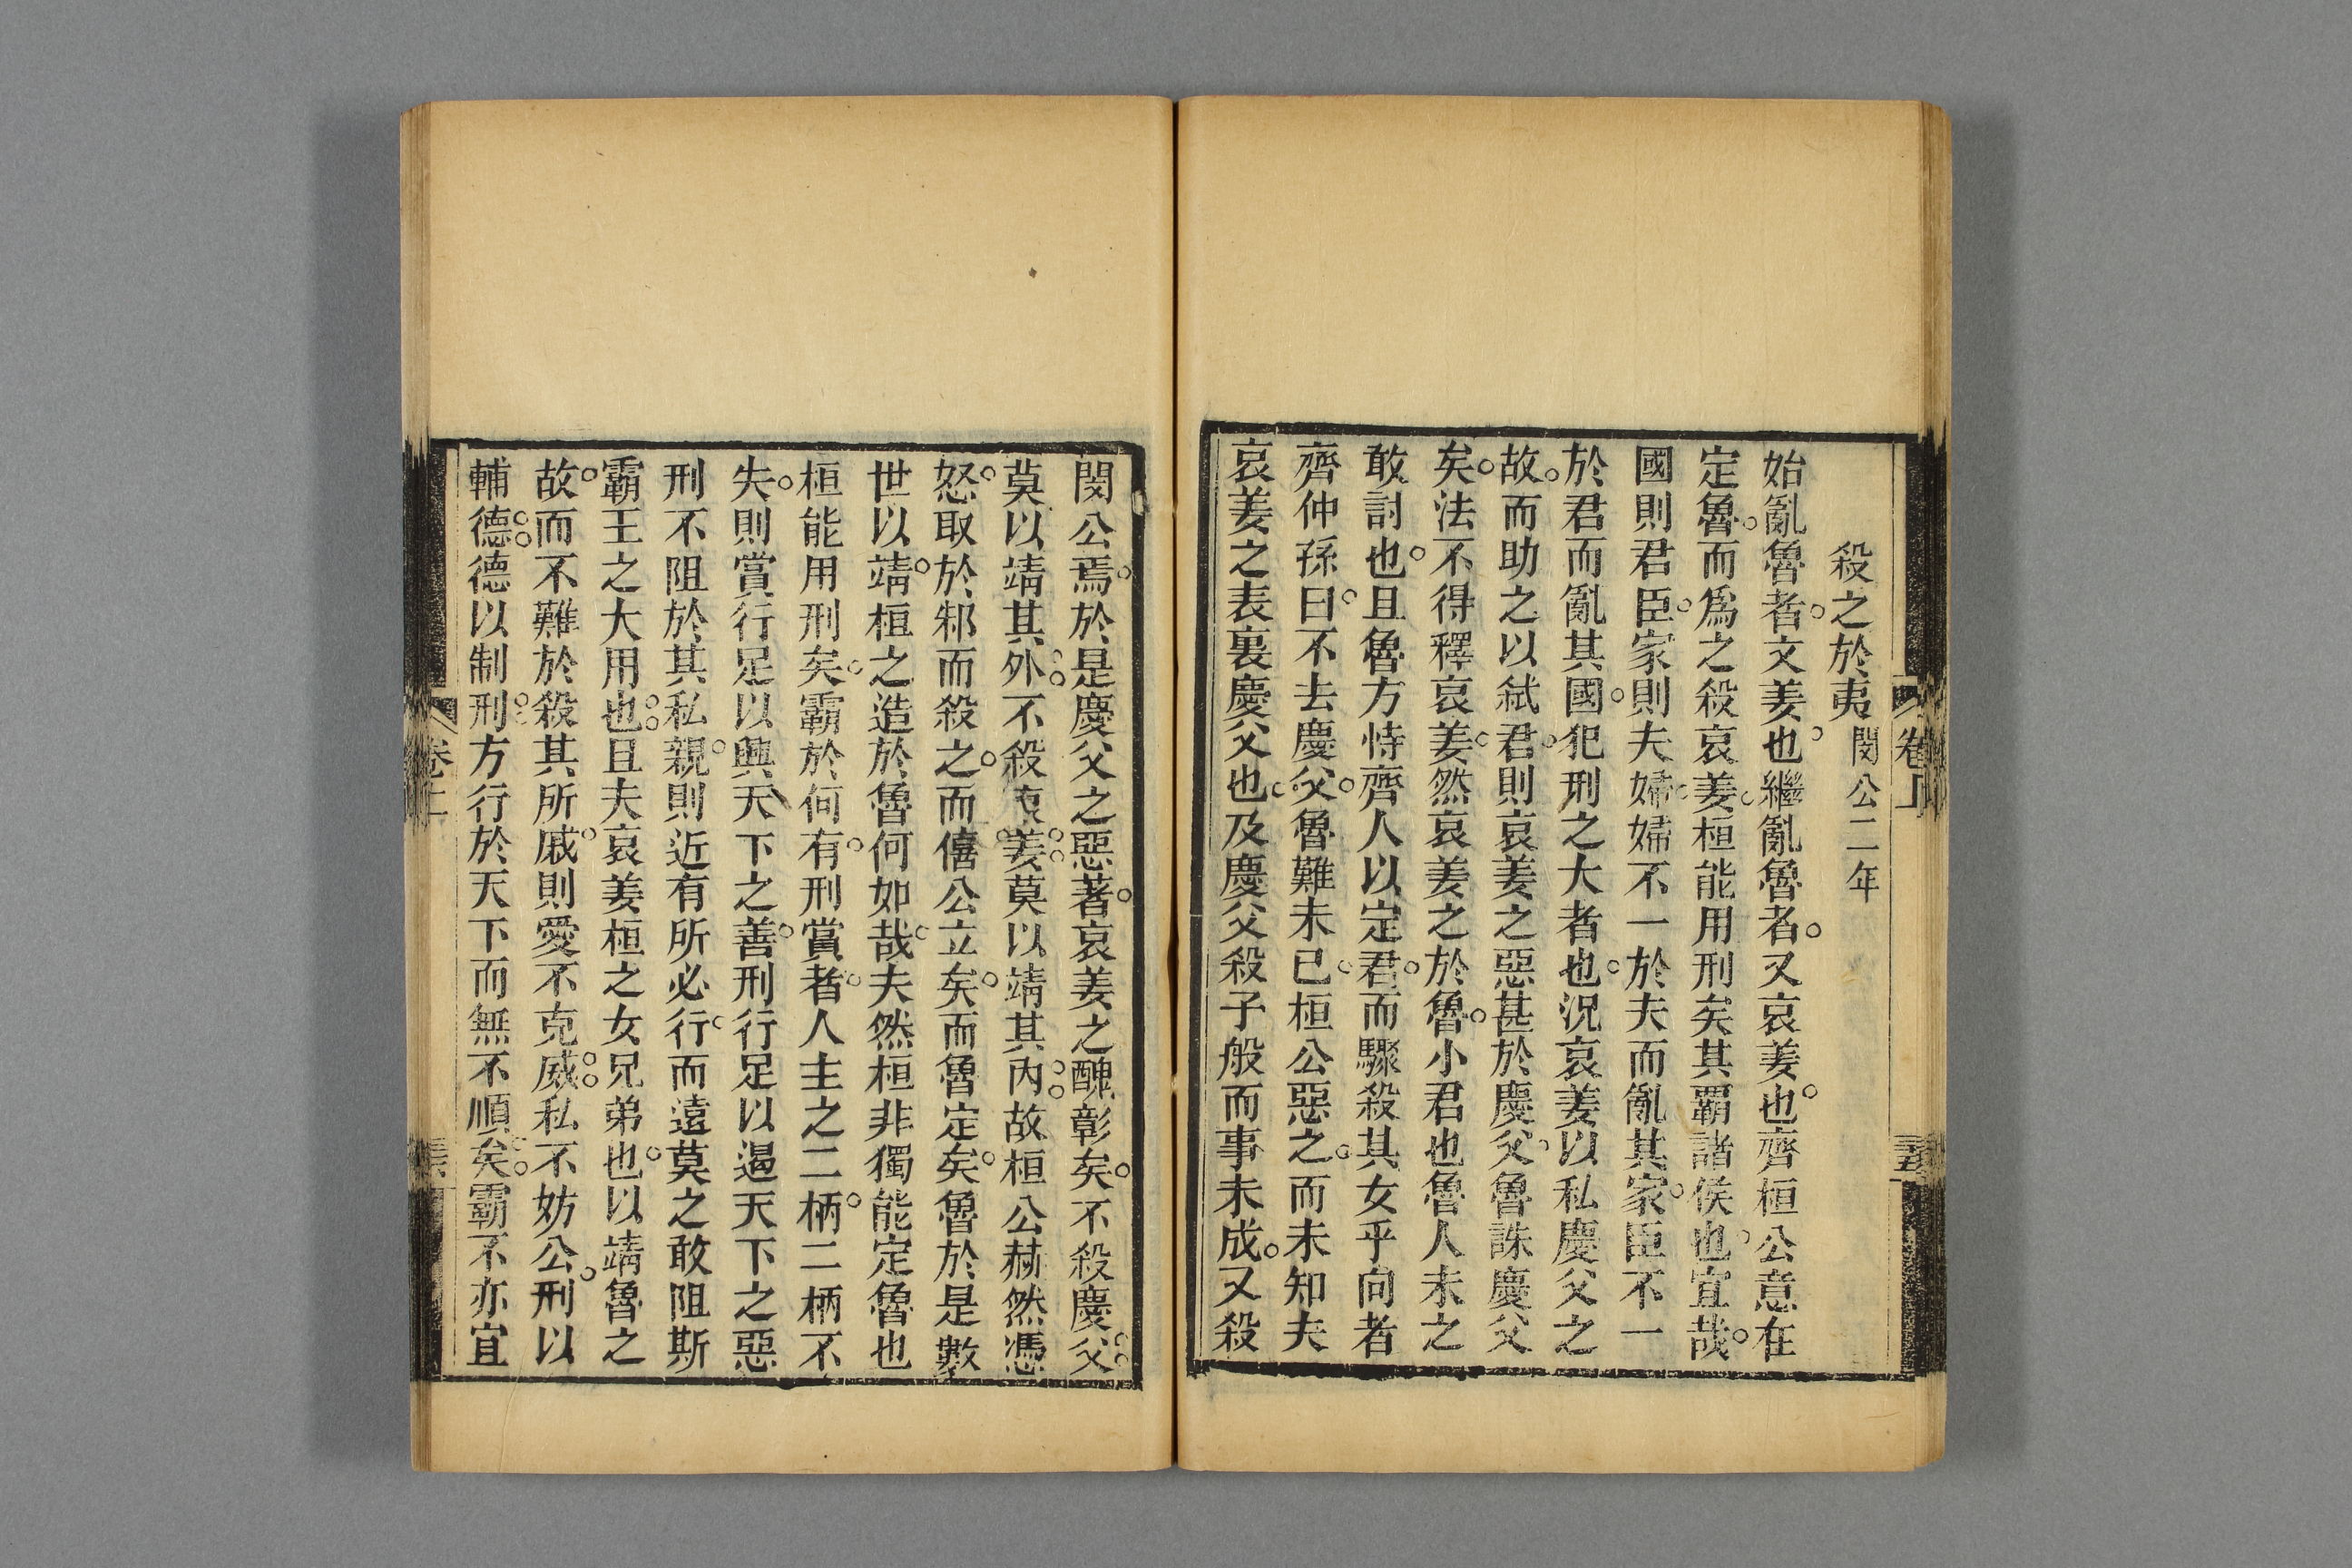 殺之於夷閔公二年
始亂魯者文姜也繼亂魯者又哀姜也齊桓公意在
定魯而爲之殺哀姜桓能用刑矣其覇諸侯也宜哉
國則君臣家則夫婦婦不一於夫而亂其家臣不一
於君而亂其國犯刑之大者也況哀姜以私慶父之
故而助之以弒君則哀姜之惡甚於慶父魯誅慶父
矣法不得釋哀姜然哀姜之於魯小君也魯人未之
敢討也且魯方恃齊人以定君而驟殺其女乎向者
齊仲孫曰不去慶父魯難未已桓公惡之而未知夫
哀姜之表裏慶父也及慶父殺子般而事未成又殺
卷上
閔公焉於是慶父之惡著哀姜之醜彰矣不殺慶父
莫以靖其外不殺哀姜莫以靖其內故桓公赫然馮
怒取於邾而殺之而僖公立矣而魯定矣魯於是數
世以靖桓之造於魯何如哉夫然桓非獨能定魯也
桓能用刑矣霸於何有刑賞者人主之二柄二柄不
失則賞行足以興天下之善刑行足以遏天下之惡
刑不阻於其私親則近有所必行而遠莫之敢阻斯
霸王之大用也且夫哀姜桓之女兄弟也以靖魯之
故而不難於殺其所戚則愛不克威私不妨公刑以
輔德德以制刑方行於天下而無不順矣霸不亦宜
卷上